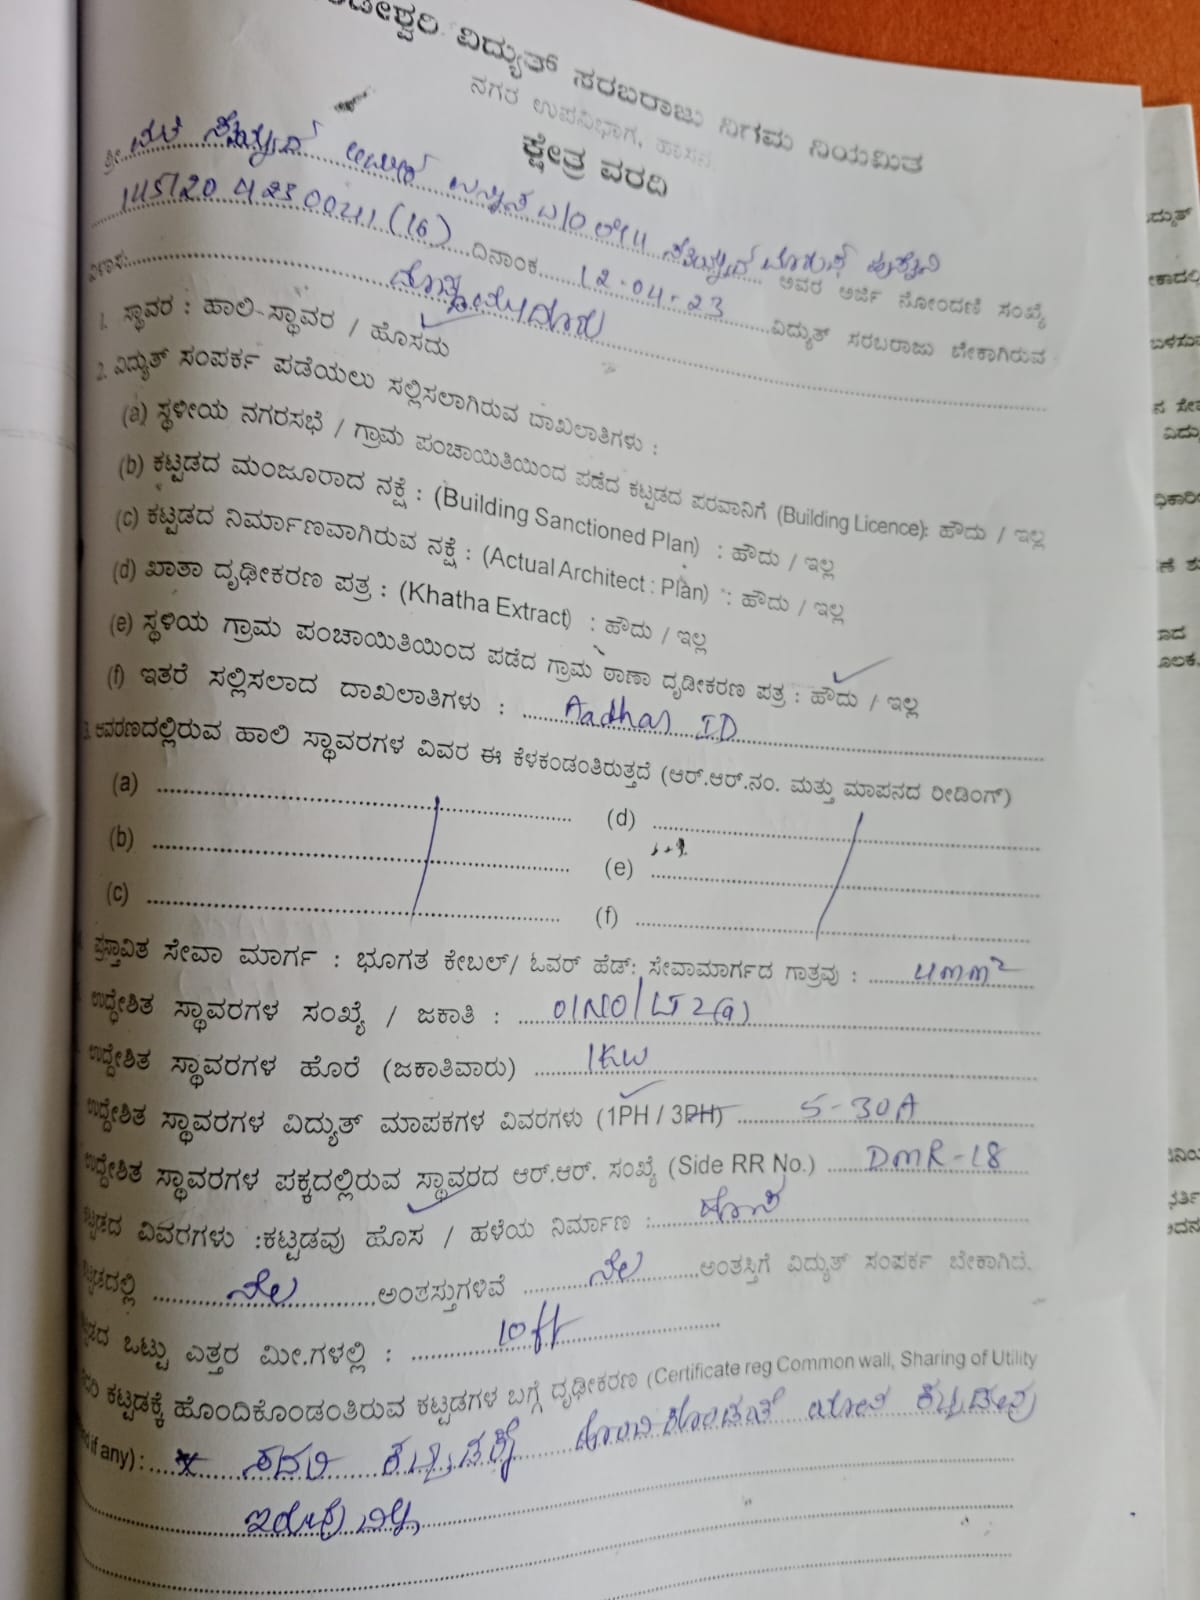 ವಿದ್ಯುತ್ ಸರಬರಾಜು ನಿಗಮ ನಿಯಮಿತ
ನಗರ ಉಪವಿಭಾಗ, ಹಾಸನ
ಕ್ಷೇತ್ರ ವರದಿ
ಶ್ರೀ
ಅವರ ಅರ್ಜಿ ನೋಂದಣಿ ಸಂಖ್ಯೆ
(16) ದಿನಾಂಕ 12-04-23 ವಿದ್ಯುತ್ ಸರಬರಾಜು ಬೇಕಾಗಿರುವ
ವಿಳಾಸ:
1. ಸ್ಥಾವರ : ಹಾಲಿ-ಸ್ಥಾವರ / ಹೊಸದು
2. ವಿದ್ಯುತ್ ಸಂಪರ್ಕ ಪಡೆಯಲು ಸಲ್ಲಿಸಲಾಗಿರುವ ದಾಖಲಾತಿಗಳು :
(a) ಸ್ಥಳೀಯ ನಗರಸಭೆ / ಗ್ರಾಮ ಪಂಚಾಯಿತಿಯಿಂದ ಪಡೆದ ಕಟ್ಟಡದ ಪರವಾನಿಗೆ (Building Licence): ಹೌದು / ಇಲ್ಲ
(b) ಕಟ್ಟಡದ ಮಂಜೂರಾದ ನಕ್ಷೆ : (Building Sanctioned Plan) : ಹೌದು / ಇಲ್ಲ
(c) ಕಟ್ಟಡದ ನಿರ್ಮಾಣವಾಗಿರುವ ನಕ್ಷೆ : (Actual Architect : Plan) : ಹೌದು / ಇಲ್ಲ
(d) ಖಾತಾ ದೃಢೀಕರಣ ಪತ್ರ : (Khatha Extract) : ಹೌದು / ಇಲ್ಲ
(e) ಸ್ಥಳಿಯ ಗ್ರಾಮ ಪಂಚಾಯಿತಿಯಿಂದ ಪಡೆದ ಗ್ರಾಮ ಠಾಣಾ ದೃಢೀಕರಣ ಪತ್ರ : ಹೌದು / ಇಲ್ಲ
(f) ಇತರೆ ಸಲ್ಲಿಸಲಾದ ದಾಖಲಾತಿಗಳು : Aadhar ID
3. ಆವರಣದಲ್ಲಿರುವ ಹಾಲಿ ಸ್ಥಾವರಗಳ ವಿವರ ಈ ಕೆಳಕಂಡಂತಿರುತ್ತದೆ (ಆರ್.ಆರ್.ನಂ. ಮತ್ತು ಮಾಪನದ ರೀಡಿಂಗ್)
(a) (d)
(b) (e)
(c) (f)
ಪ್ರಸ್ತಾವಿತ ಸೇವಾ ಮಾರ್ಗ : ಭೂಗತ ಕೇಬಲ್/ ಓವರ್ ಹೆಡ್: ಸೇವಾಮಾರ್ಗದ ಗಾತ್ರವು : 4mm²
ಉದ್ದೇಶಿತ ಸ್ಥಾವರಗಳ ಸಂಖ್ಯೆ / ಜಕಾತಿ : 01NO/LT2(a)
ಉದ್ದೇಶಿತ ಸ್ಥಾವರಗಳ ಹೊರೆ (ಜಕಾತಿವಾರು) 1KW
ಉದ್ದೇಶಿತ ಸ್ಥಾವರಗಳ ವಿದ್ಯುತ್ ಮಾಪಕಗಳ ವಿವರಗಳು (1PH / 3PH) 5-30A
ಉದ್ದೇಶಿತ ಸ್ಥಾವರಗಳ ಪಕ್ಕದಲ್ಲಿರುವ ಸ್ಥಾವರದ ಆರ್.ಆರ್. ಸಂಖ್ಯೆ (Side RR No.) DMR-18
ವಿವರಗಳು :ಕಟ್ಟಡವು ಹೊಸ / ಹಳೆಯ ನಿರ್ಮಾಣ : ಹೊಸ
ನೆಲ ಅಂತಸ್ತುಗಳಿವೆ ನೆಲ ಅಂತಸ್ತಿಗೆ ವಿದ್ಯುತ್ ಸಂಪರ್ಕ ಬೇಕಾಗಿದೆ.
ಒಟ್ಟು ಎತ್ತರ ಮೀ.ಗಳಲ್ಲಿ : 10ft
ಕಟ್ಟಡಕ್ಕೆ ಹೊಂದಿಕೊಂಡಂತಿರುವ ಕಟ್ಟಡಗಳ ಬಗ್ಗೆ ದೃಢೀಕರಣ (Certificate reg Common wall, Sharing of Utility
if any) : ಸದರಿ ಕಟ್ಟಡಕ್ಕೆ ಹೊಂದಿಕೊಂಡಂತೆ ಯಾವ ಕಟ್ಟಡವು
ಇರುವುದಿಲ್ಲ